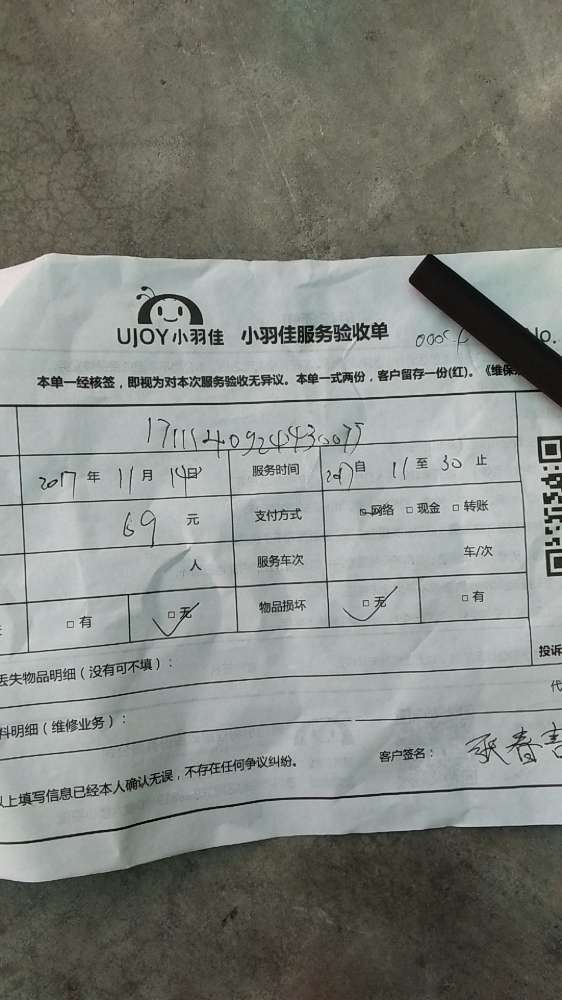 UJOY小羽佳 小羽佳服务验收单 No.
本单一经核签，即视为对本次服务验收无异议。本单一式两份，客户留存一份(红)。《维保
2017年 11月 14日 服务时间 2017自 11至 30止
69 元 支付方式 □网络 □现金 □转账
人 服务车次 车/次
□有 □无 物品损坏 □无 □有
丢失物品明细（没有可不填）： 投诉
料明细（维修业务）： 代
以上填写信息已经本人确认无误，不存在任何争议纠纷。 客户签名：